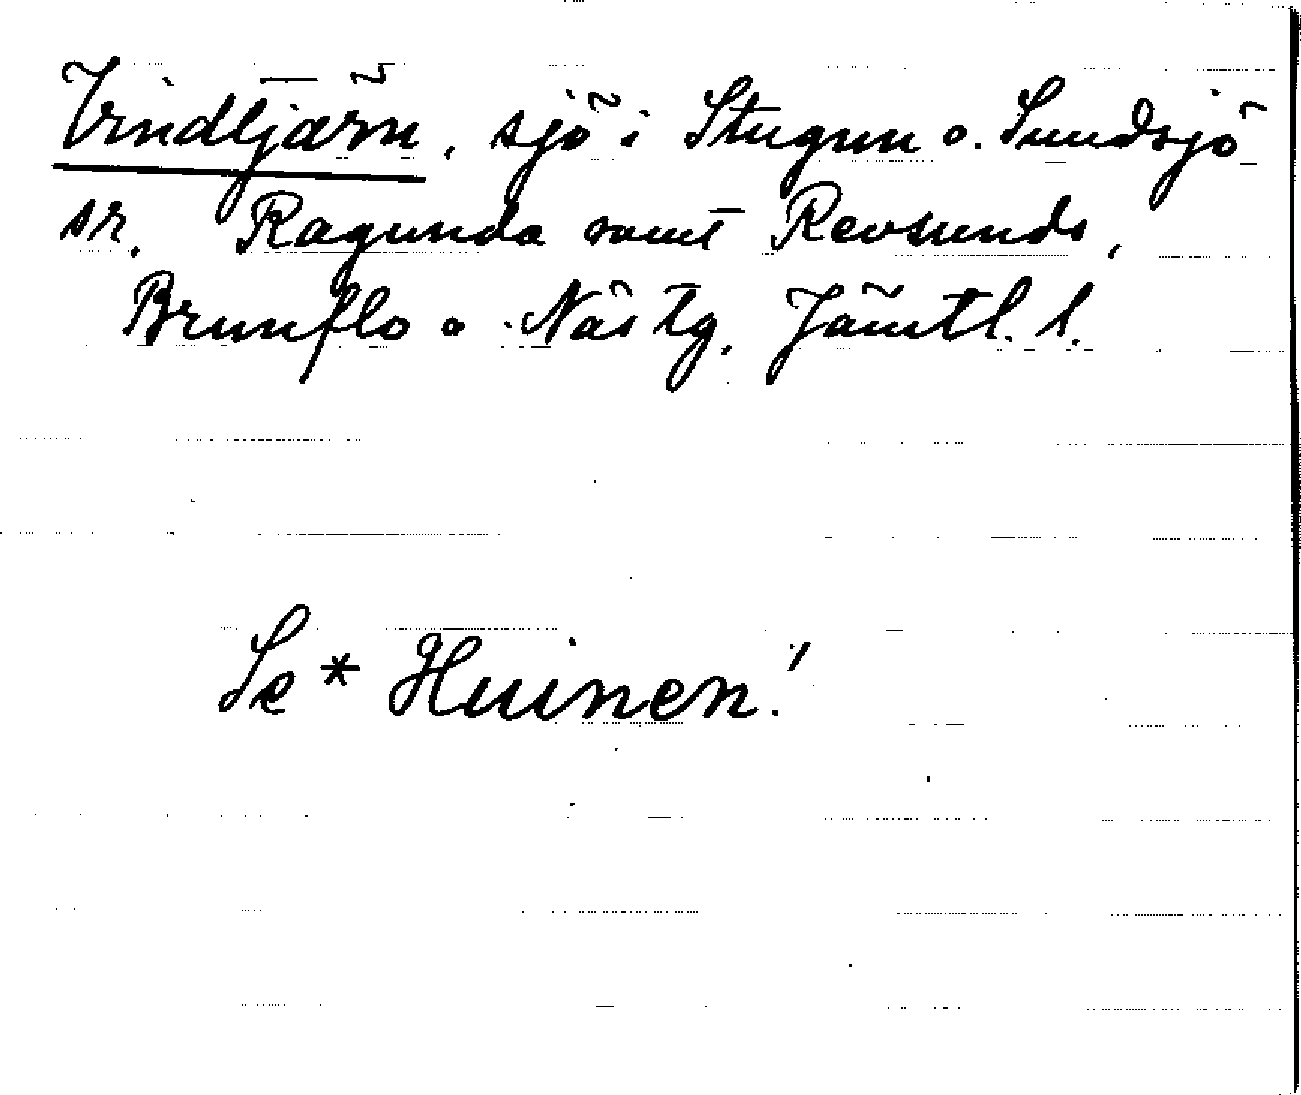 Vindtjärn, sjö i Stugun o. Sundsjö
sr. Ragunda samt Revsunds,
Brunflo o Näs tg. Jämtl. l.
Se * Huinen!